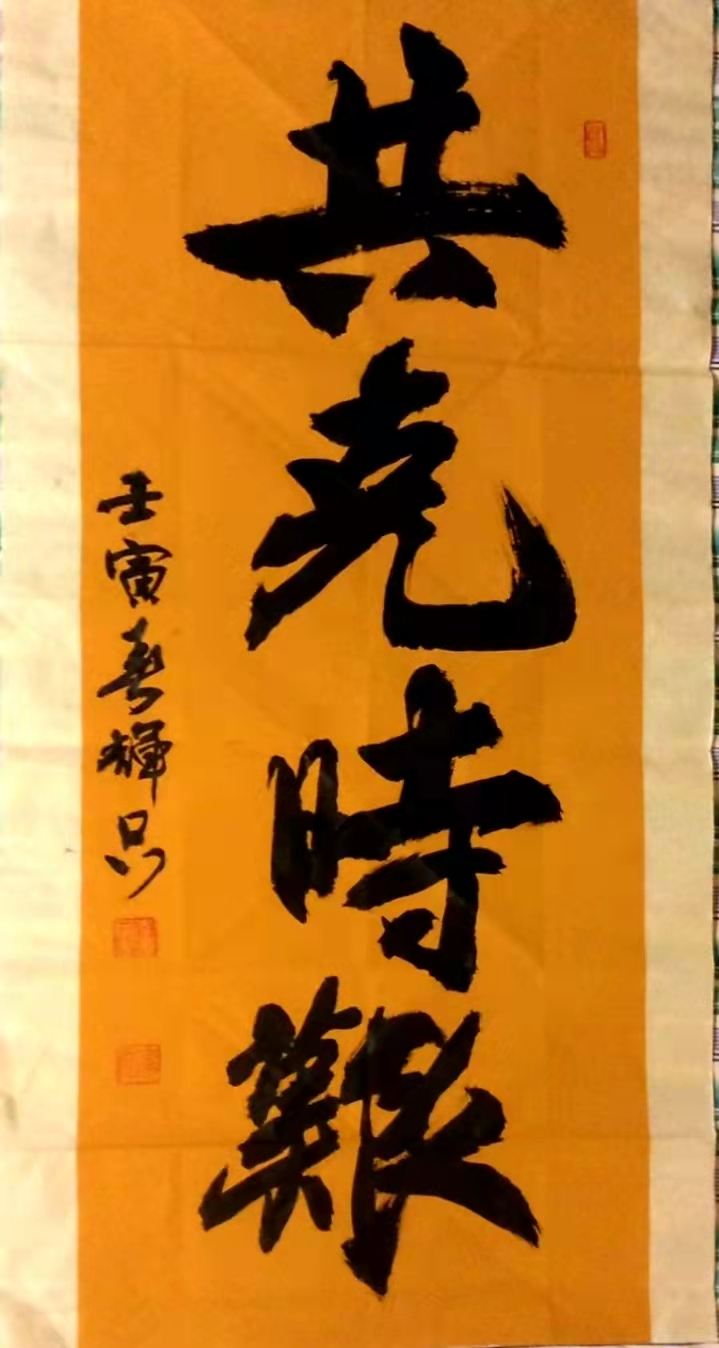 共克時艱
壬寅春輝